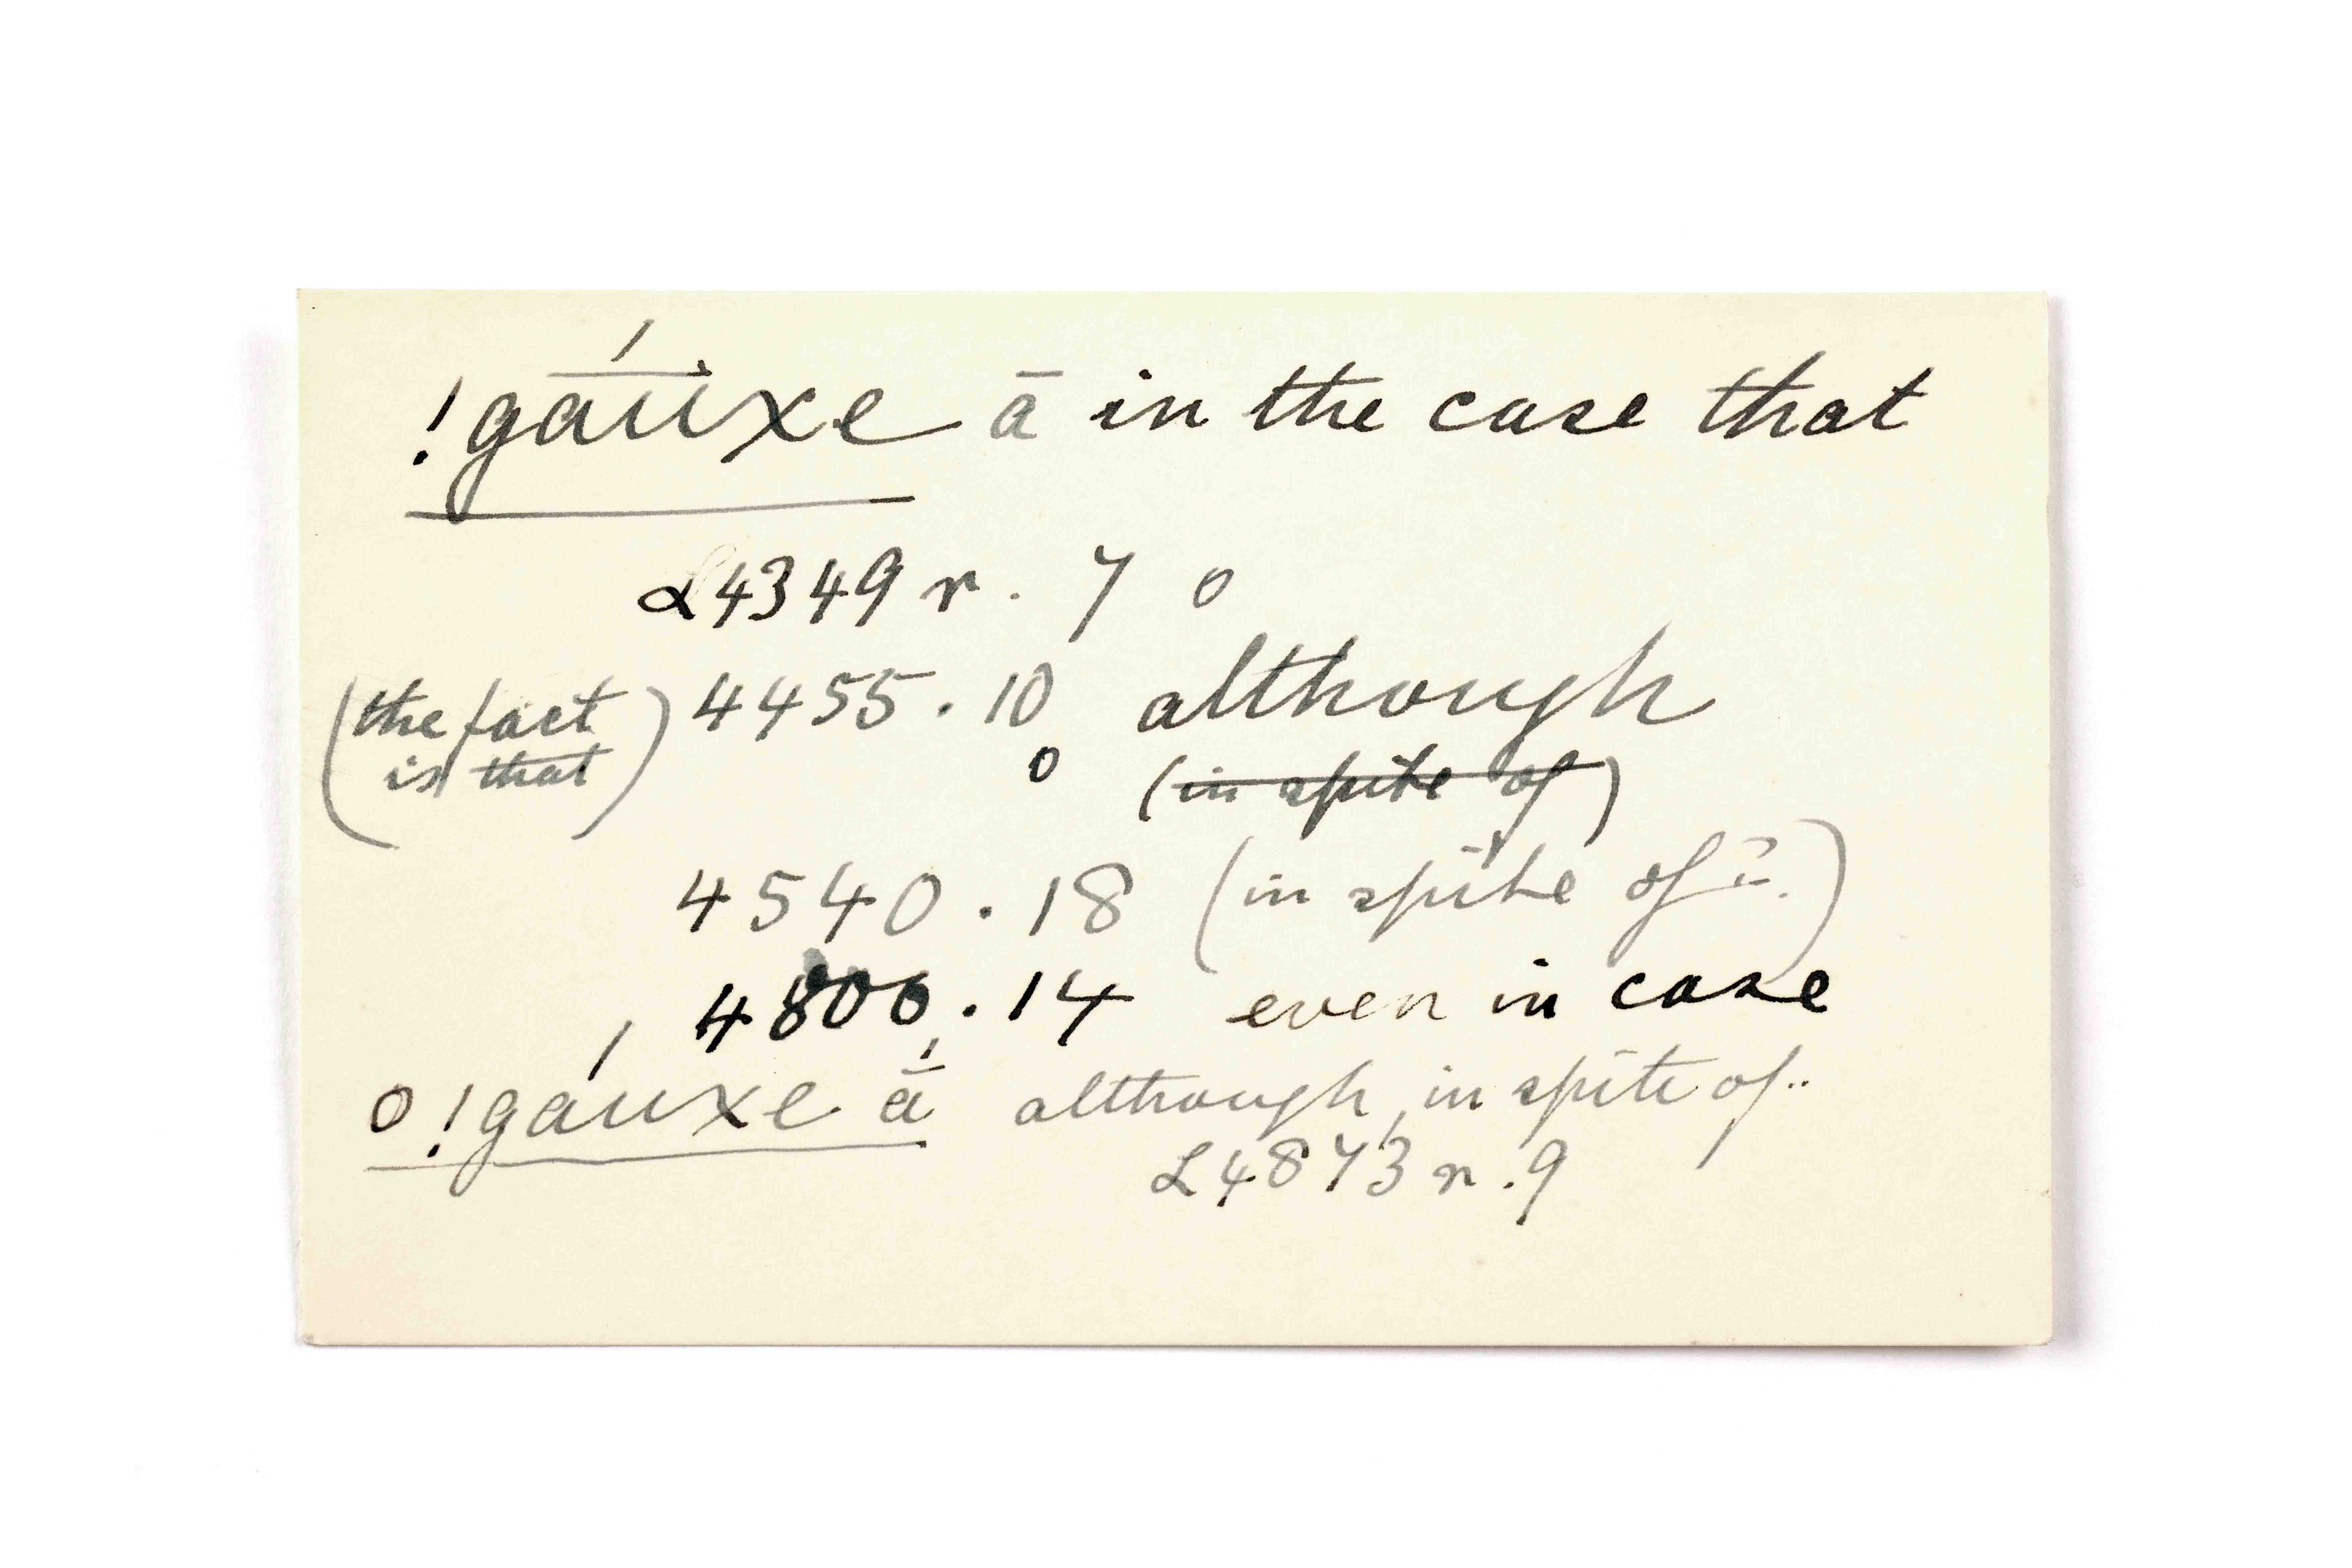 !gáuxe ā in the case that
L4349 r. 7 o
(the fact 4455.10 although
is that) o (in spite of)
4540.18 (in spite of ?.)
4806.14 even in case
o !gáuxe ā́ although, in spite of..
L4873 r.9